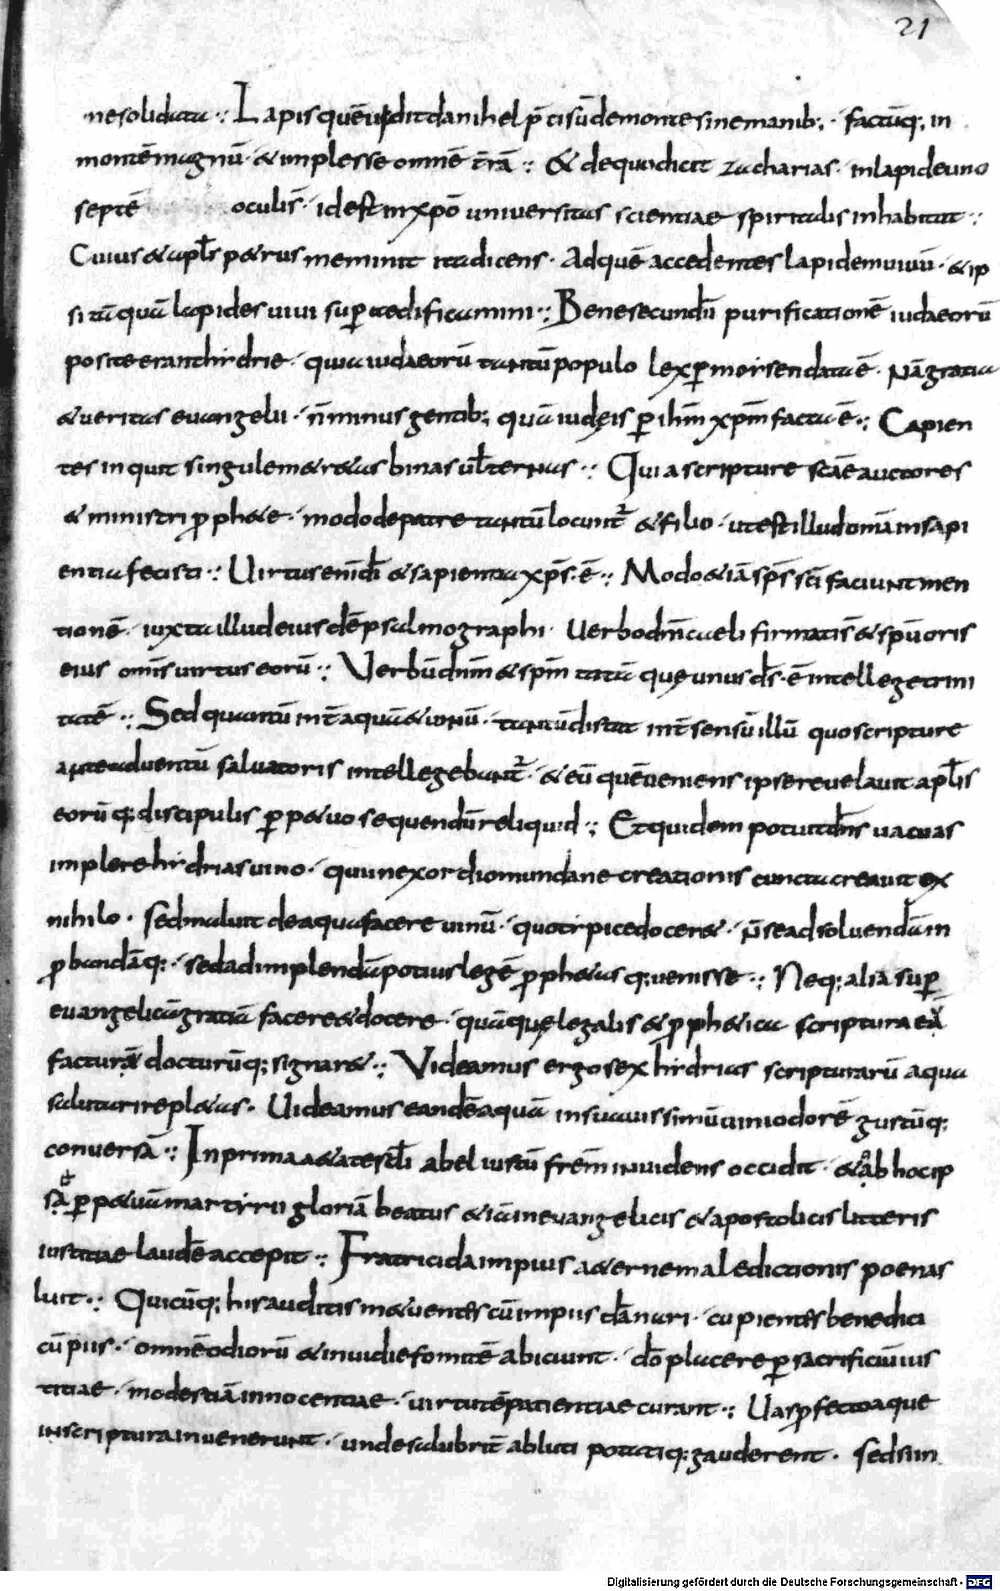 21
ne solidata :· Lapis quē uidit danihel p̄cisū de monte sine manib; · factūq; in
montē magnū · & implesse omnē t̄rā :· & de quo dicit zacharias · in lapide uno
septē oculis · id est in xp̄o universitas scientiae spiritalis inhabitat :·
Cuius & apl̄s p&rus meminit ita dicens · Ad quē accedentes lapidem uiuū · & ip
si tāquā lapides uiui sup̄aedificamini :· Bene secundū purificationē iudaeorū
posite erant hidrie · quia iudaeorū tantū populo lex per moisen data ē · Nā gratia
& veritas evangelii · n̄ minus gentib; quā iudęis p̄ ih̄m xp̄m facta ē :· Capien
tes inquit singule m&r&as binas ul̄ ternas :· Quia scripture sc̄ae auctores
& ministri proph&e · modo de patre tantū locunt̄ & filio · ut est illud om̄a in sapi
entia fecisti :· Uirtus eni dī & sapientia xp̄s ē :· Modo & iā sp̄s sc̄i faciunt men
tionē · iuxta illud eius dē psalmographi · Uerbo dn̄i caeli firmati s̄ & sp̄u oris
eius om̄is virtus eorū :· Verbū dn̄m & sp̄m totū quę unus ds̄ ē intellege trini
tatē :· Sed quantū int̄ aquā & uinū · tantū distat int̄ sensū illū quo scripture
ante adventū salvatoris intellegebant̄ · & eū quē veniens ipse revelavit apl̄is
eorūq; discipulis p̄p&uo sequendū reliquid :· Et quidem potuit dn̄s vacuas
implere hidrias uino · qui in exordio mundane creationis cuncta creavit ex
nihilo · sed maluit de aqua facere uinū · quo tipice docer& · n̄ se ad solvendā in
p̄bandāq; · sed ad implendā potius legē proph&asq; venisse :· Neq; alia sup̄
evangelicā gratiā facere & docere · quā quę legalis & proph&ica scriptura eā
facturā docturūq; signar& :· Videamus ergo sex hidrias scripturarū aqua
salutari repl&as · Uideamus eandē aquā in suavissimū uini odorē gustūq;
conversā :· In prima a&ate sc̄li abel iustū frēm invidens occidit · & ab hoc ip
sā p̄p&uā martyrii gloriā beatus & iā in evangelicis & apostolicis litteris
iustitiae laudē accepit :· Fratricida impius a&erne maledictionis poenas
luit :· Quicūq; his auditis m&uentes cū impiis dānari · cupientes benedici
cū piis · omnē odiorū & invidie fomitē abiciunt · dō placere p̄ sacrificiū ius
titiae · modestiā innocentiae · virtutē patientiae curant :· Uas profecto aque
in scriptura invenerunt · unde salubrit̄ abluti potatiq; gauderent · sed si in
Digitalisierung gefördert durch die Deutsche Forschungsgemeinschaft - DFG